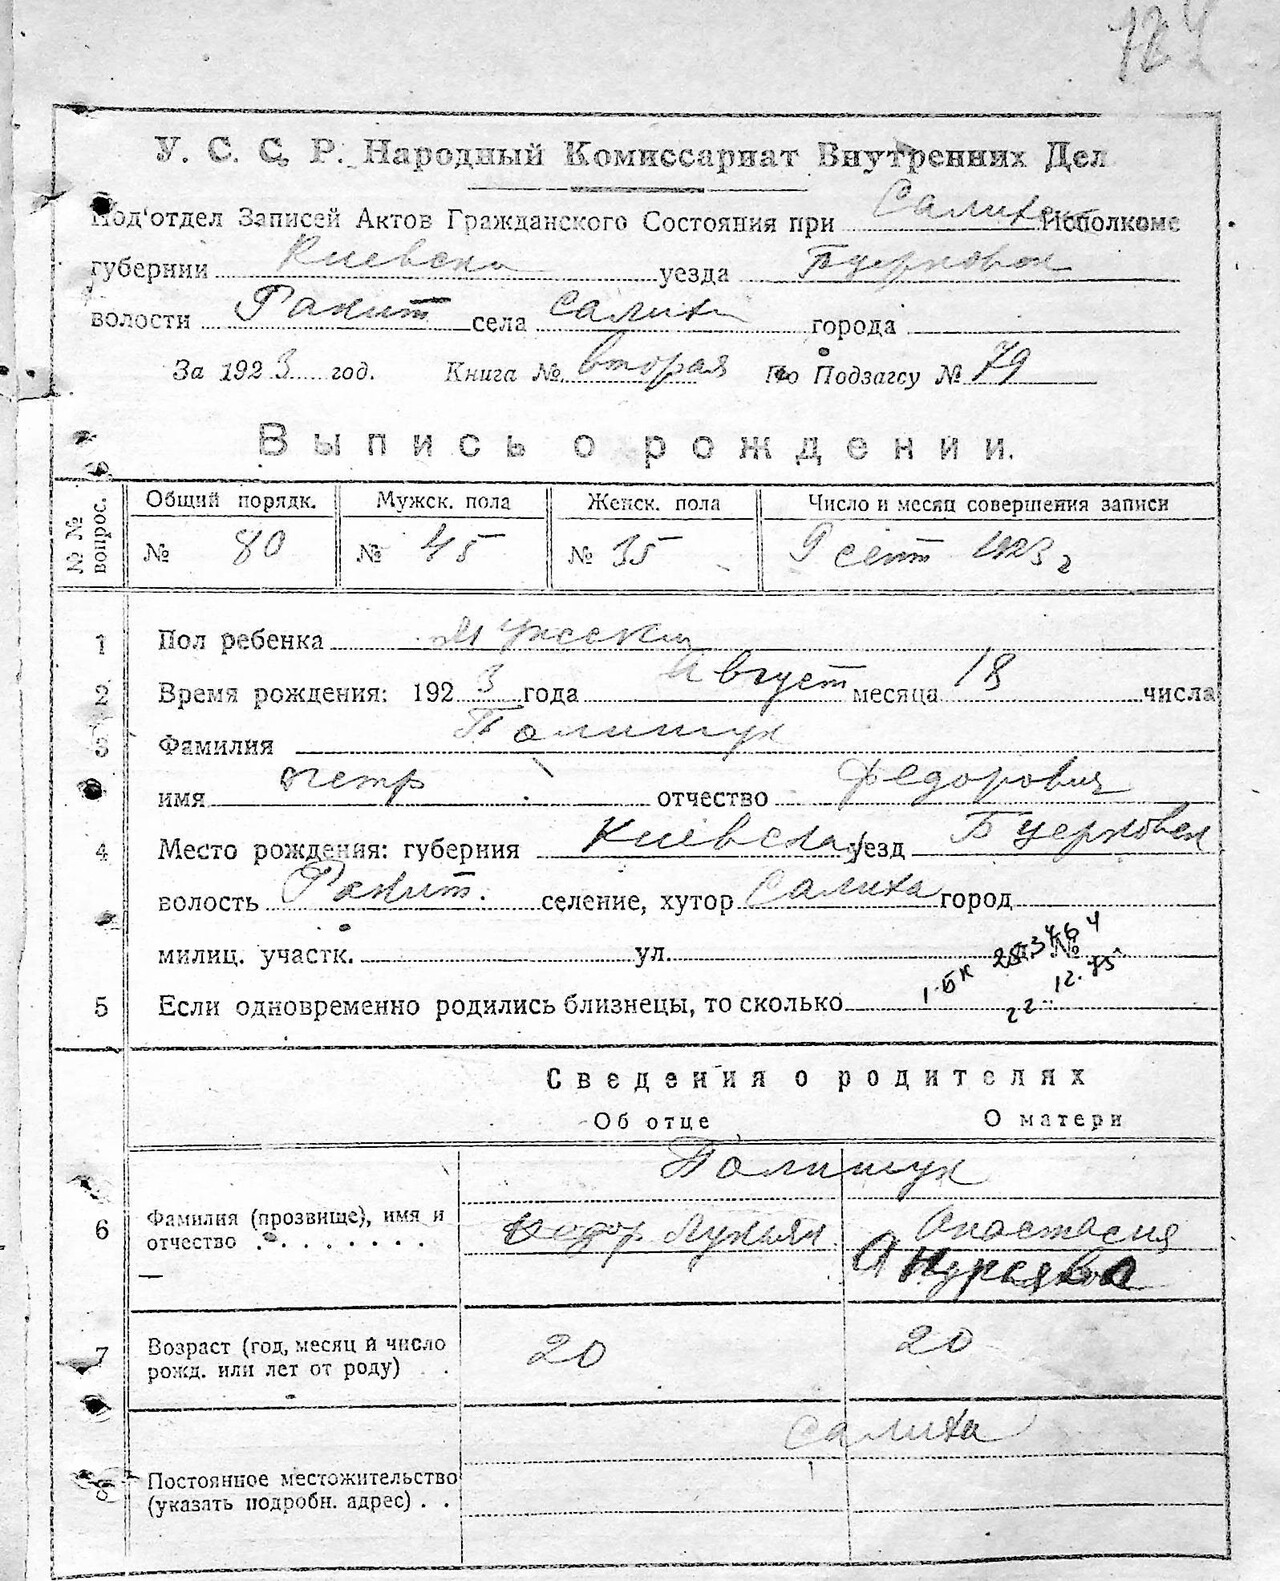 У. С. С. Р. Народный Комиссариат Внутренних Дел
Под'отдел Записей Актов Гражданского Состояния при Салихск Исполкоме
губернии Киевска уезда Бцерковск
волости Ракит села Салиха города
За 1923 год. Книга № вторая По Подзагсу № 79
Выпись о рождении.
№ № вопрос.
Общий порядк. Мужск. пола Женск. пола Число и месяц совершения записи
№ 80 № 45 № 35 9 сент 1923 г
1 Пол ребенка Мужский
2 Время рождения: 1923 года Август месяца 18 числа
3 Фамилия Полищук
имя Петр отчество Федорович
4 Место рождения: губерния Киевская уезд Бцерковск
волость Ракит. селение, хутор Салиха город
милиц. участк. ул. №
5 Если одновременно родились близнецы, то сколько
22.12.75
Сведения о родителях
Об отце О матери
Полищук
6 Фамилия (прозвище), имя и отчество
Федор Лукьян Анастасия
7 Возраст (год, месяц и число рожд. или лет от роду) 20 20
Салиха
8 Постоянное местожительство
(указать подробн. адрес) . .